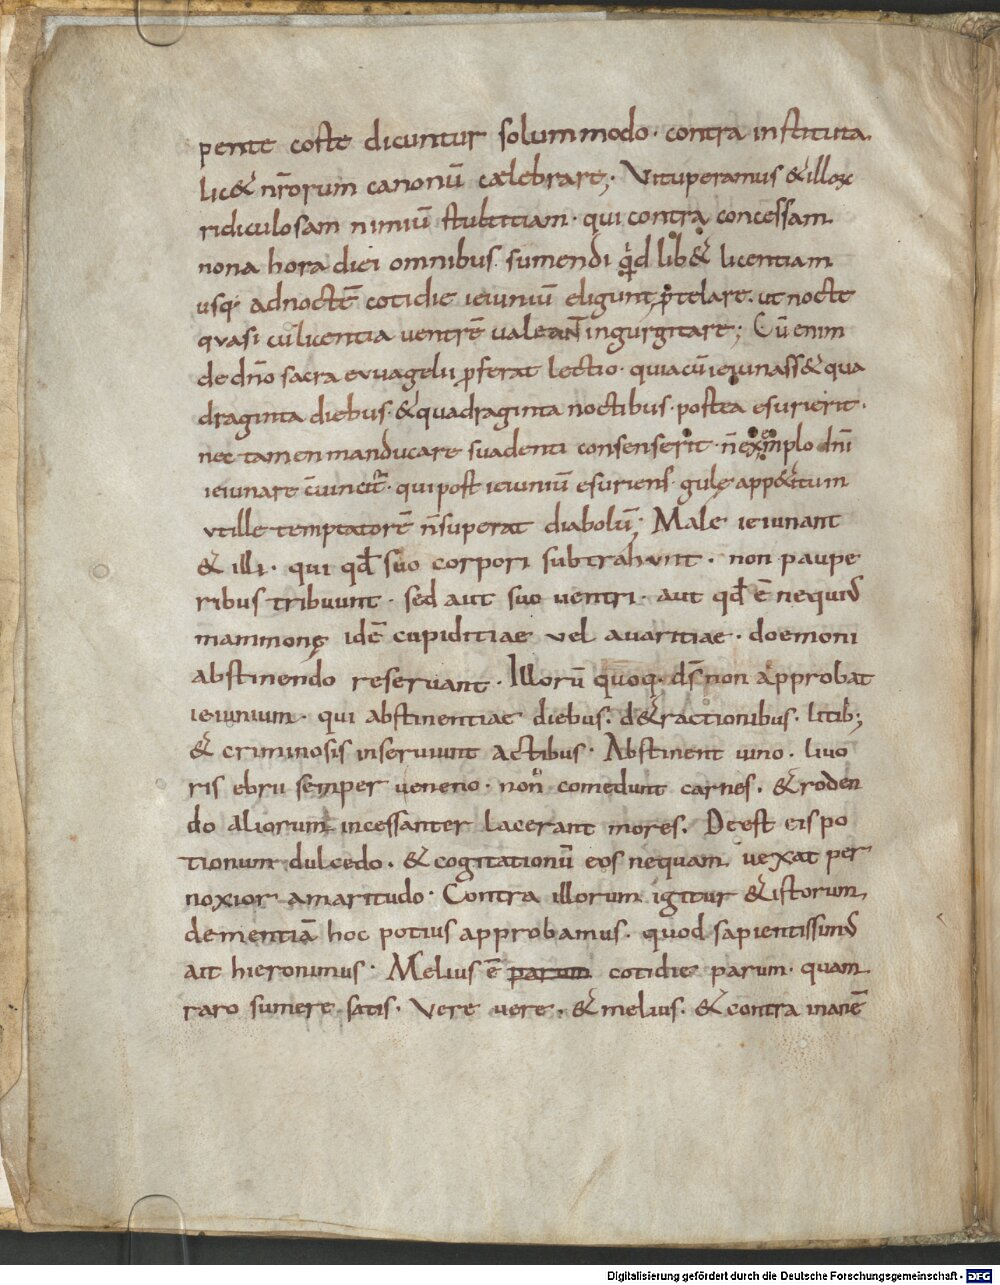 pente coste dicuntur solummodo · contra instituta
lic& nr̄orum canonū cælebrare; · Vituperamus & illoꝝ
ridiculosam nimiū stultitiam · qui contra concessam
nona hora diei omnibus sumendi qd lib& licentiam
usq; ad noctē cotidie ieiuniū eligunt ꝓtelare · ut nocte
quasi cū licentia ventrē valeant ingurgitare; Cū enim
de dn̄o sacra evvagelii ꝓferat lectio · quia cū ieiunass& qua
draginta diebus · & quadraginta noctibus · postea esurierit ·
nec tamen manducare suadenti consenserit · n̄ exemplo dn̄i
ieiunare c̄uincit̄ · qui post ieiuniū esuriens · gulę app&itum
vt ille temptatorē n̄ superat diabolū; Male ieiunant
& illi · qui qd̄ suo corpori subtrahunt · non paupe
ribus tribuunt · sed aut suo ventri · aut qd̄ ē nequid
mammonę idē cupiditiae vel avaritiae · doemoni
abstinendo reservant · Illorū quoq · ds̄ non approbat
ieiunium · qui abstinentiae diebus · d&ractionibus · litib;
& criminosis inserviunt actibus · Abstinent vino · livo
ris ebrii semper veneno · non comedunt carnes · & roden
do aliorum incessanter lacerant mores · Deest eis po
tionum dulcedo · & cogitationū eos nequam vexat per
noxior amaritudo · Contra illorum igitur & istorum
dementiā hoc potius approbamus · quod sapientissimus
ait hieronimus · Melius ē parum cotidie parum · quam
raro sumere satis · Vere vere · & melius · & contra inanē
Digitalisierung gefördert durch die Deutsche Forschungsgemeinschaft - DFG